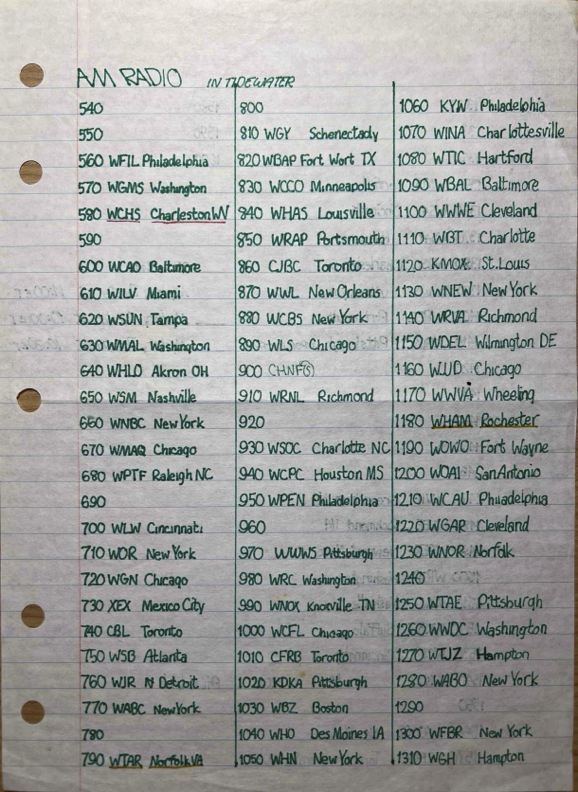 AM RADIO IN TIDEWATER
540
550
560 WFIL Philadelphia
570 WGMS Washington
580 WCHS Charleston WV
590
600 WCAO Baltimore
610 WILV Miami
620 WSUN Tampa
630 WMAL Washington
640 WHLO Akron OH
650 WSM Nashville
660 WNBC New York
670 WMAQ Chicago
680 WPTF Raleigh NC
690
700 WLW Cincinnati
710 WOR New York
720 WGN Chicago
730 XEX Mexico City
740 CBL Toronto
750 WSB Atlanta
760 WJR Detroit
770 WABC New York
780
790 WTAR Norfolk VA
800
810 WGY Schenectady
820 WBAP Fort Wort TX
830 WCCO Minneapolis
840 WHAS Louisville
850 WRAP Portsmouth
860 CJBC Toronto
870 WWL New Orleans
880 WCBS New York
890 WLS Chicago
900 CHNF
910 WRNL Richmond
920
930 WSOC Charlotte NC
940 WCPC Houston MS
950 WPEN Philadelphia
960
970 WWWS Pittsburgh
980 WRC Washington
990 WNOX Knoxville TN
1000 WCFL Chicago
1010 CFRB Toronto
1020 KDKA Pittsburgh
1030 WBZ Boston
1040 WHO Des Moines IA
1050 WHN New York
1060 KYW Philadelphia
1070 WINA Charlottesville
1080 WTIC Hartford
1090 WBAL Baltimore
1100 WWWE Cleveland
1110 WBT Charlotte
1120 KMOX St. Louis
1130 WNEW New York
1140 WRVA Richmond
1150 WDEL Wilmington DE
1160 WJJD Chicago
1170 WWVA Wheeling
1180 WHAM Rochester
1190 WOWO Fort Wayne
1200 WOAI San Antonio
1210 WCAU Philadelphia
1220 WGAR Cleveland
1230 WNOR Norfolk
1240
1250 WTAE Pittsburgh
1260 WWDC Washington
1270 WTJZ Hampton
1280 WABO New York
1290
1300 WFBR New York
1310 WGH Hampton